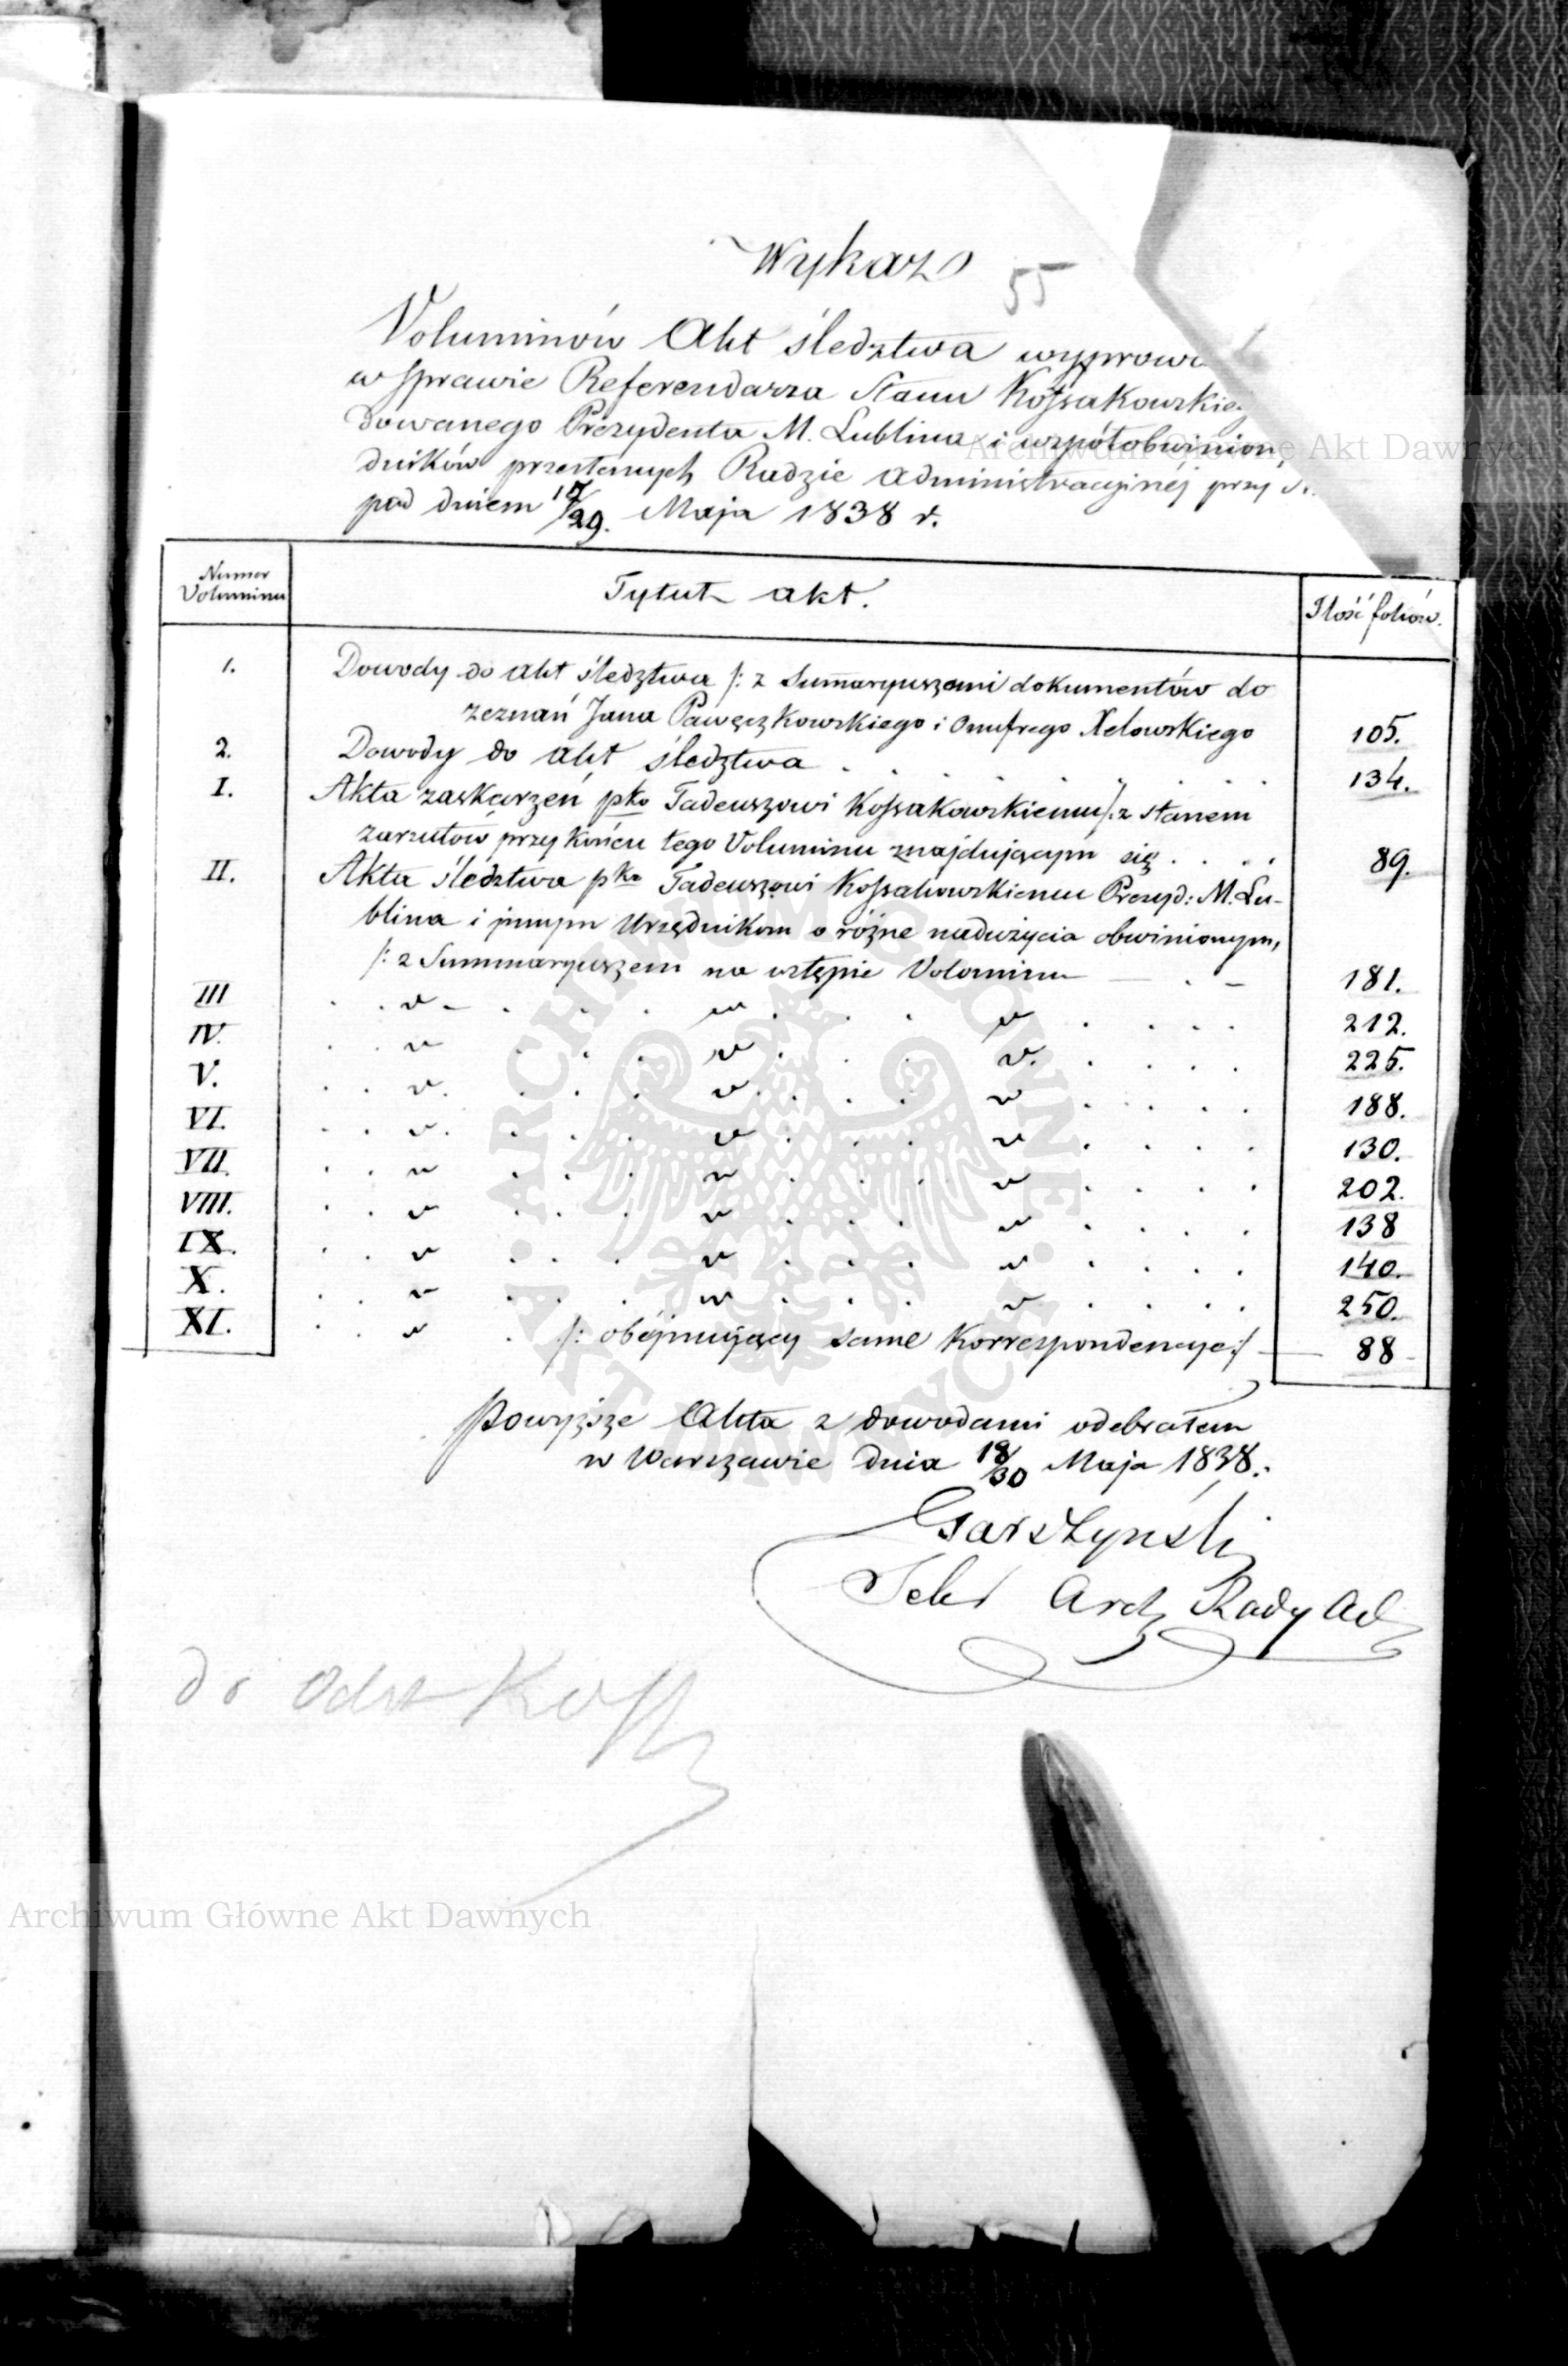 Wykaz
55
Voluminów Akt śledztwa wyprow
w sprawie Referendarza Stanu Kossakowskieg
dowanego Prezydenta M. Lublina i wspołobwinion
dników przesłanych Radzie Administracyjnéj przy
pod dniem 17/29. Maja 1838 r.
Numer Voluminu
Tytuł akt.
Ilość foliów.
1. Dowody do akt śledztwa /: z Summaryuszami dokumentów do
zeznań Jana Pawęczkowskiego i Onufrego 105.
2. Dowody do akt śledztwa . . . . . . . 134.
I. Akta zaskarzeń pko Tadeuszowi Kossakowskiemu /: z stanem
zarzutów przy końcu tego Voluminu znajdującym się . . . . 89.
II. Akta śledztwa pko Tadeuszowi Kossakowskiemu Prezyd: M. Lu-
blina i innym Urzędnikom o różne nadużycia obwinionym,
/: z Summaryuszem na wstępie Voluminu — . – 181.
III . . " – . . . " . . . " . . . . 212.
IV. . . " . . . " . . . " . . . . 225.
V. . . " . . . " . . . " . . . . 188.
VI. . . " . . . " . . . " . . . . 130.
VII. . . " . . . " . . . " . . . . 202.
VIII. . . " . . . " . . . " . . . . 138
IX. . . " . . . " . . . " . . . . 140.
X. . . " . . . " . . . " . . . . 250.
XI. . . " . /: obejmujący same Korrespondencye :/ — 88
Powyższe Akta z dowodami odebrałem
w Warszawie dnia 18/30 Maja 1838.
Garszyński
Sekr Arch Rady Ad
do Odst Koss
Archiwum Główne Akt Dawnych
Archiwum Główne Akt Dawnych
ARCHIWUM GŁÓWNE AKT DAWNYCH